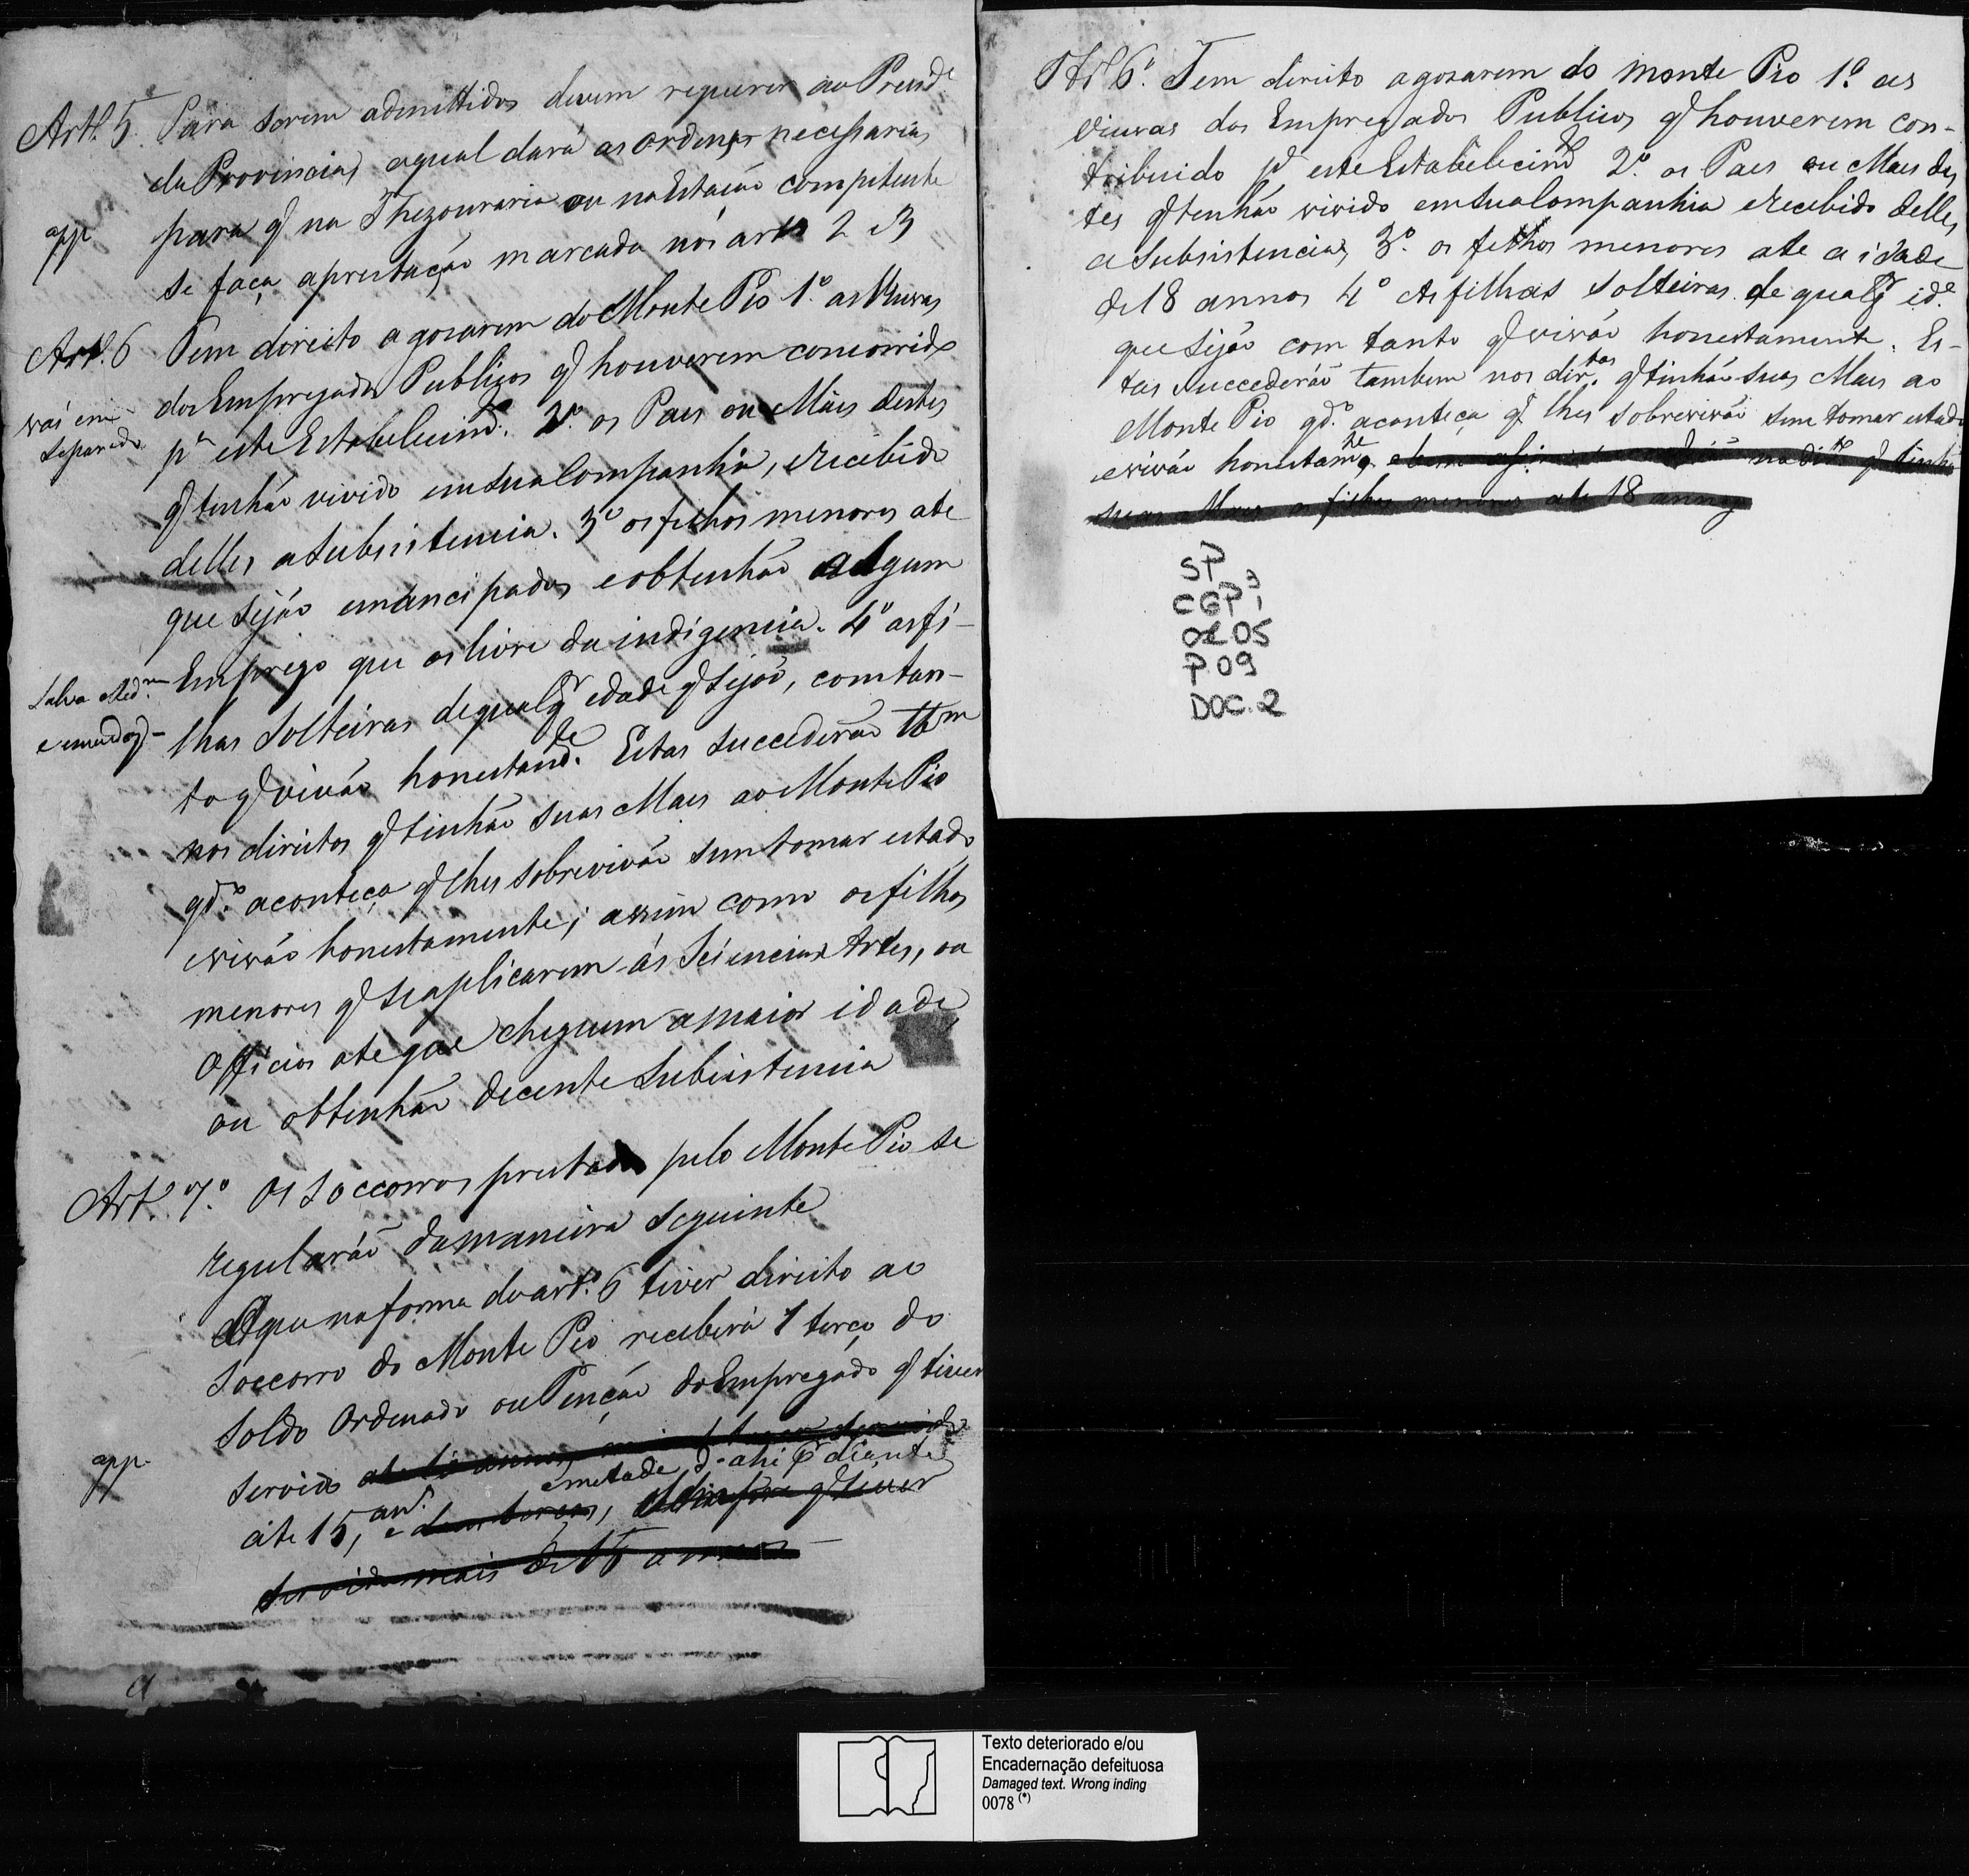 Artº. 5. Para serem admittidos devem requerer ao Presidᵉ
da Provincia, aqual dará as ordens necessarias
app para q̃ na Thezouraria ou na Estação competente
se faça aprestação marcada nos artˢ 2 e 3
Artº. 6 Tem direito a gosarem do Monte Pio 1º. as Viuvas
dos Empregados Publicos q̃ houverem concorrido
vai em separado
pª este Estabelecimᵗᵒ. 2º. os Paes ou Mães destes
q̃ tenhão vivido emsua Companhia, erecebido
delles asubsistencia. 3º os filhos menores ate
que sejão emancipados, eobtenhão algum
Emprego que os livre da indigencia. 4º asfi-
salva a Redᵃᵐ
e emendas -
lhas Solteiras dequalqʳ edade q̃ sejão, comtan-
to q̃ vivão honestamᵗᵉ. Estas succederão tbᵐ
nos direitos q̃ tinhão suas Maes ao Monte Pio
qdº. aconteça q̃ lhes sobrevivão semtomar estado
evivão honestamente; assim como osfilhos
menores q̃ seaplicarem ás Sciencias Artes, ou
Officios ate que cheguem amaior idade,
ou obtenhão decente Subsistencia
Artº. 7º. Os Soccorros prestados pelo Monte Pio se
regularáõ damaneira seguinte
Oque naforma doartº. 6 tiver direito ao
Soccorro do Monte Pio receberá 1 terço do
Soldo Ordenado ouPenção doEmpregado q̃ tiver
app. servido
emetade d'ahi pʳ diante
áte 15, anˢ. e dous terços, q̃ tiver
servido mais de 15 annos
Artº 6º. Tem direito agosarem do monte Pio 1º. as
Viuvas dos Empregados Publicos q̃ houverem con-
tribuido pª este Estabelecimᵗᵒ 2º. os Paes ou Maes des
tes q̃ tenhão vivido emsuaCompanhia erecebido delles
a Subsistencia, 3º. os filhos menores ate a idade
de 18 annos 4º As filhas solteiras de qualqʳ idᵉ
que sejão com tanto q̃ vivão honestamente. Es-
tas succederão tambem nos dirᵗᵒˢ. q̃ tinhão suas Maes ao
Monte Pio qdº. aconteça q̃ lhes sobrevivão sem tomar estado
evivão honestamᵗᵉ, q̃ tinhão
suas Maes os filhos menores ate 18 annos
SP
CGP 3,1
02.05
P.09
DOC.2
Texto deteriorado e/ou
Encadernação defeituosa
Damaged text. Wrong inding
0078 (*)